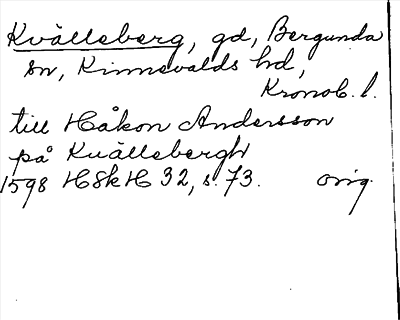 Kvällsberg, gd, Bergunda
sn, Kinnevalds hd,
Kronob. l.
till Håkon Andersson
på Kuällsbergh
1598 HSkH 32, s. 73. orig.